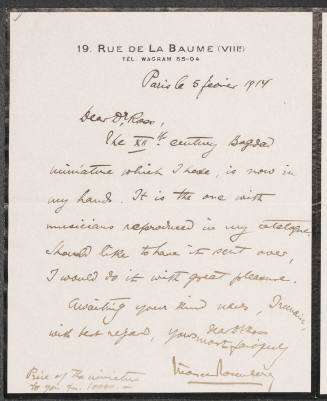 19. RUE DE LA BAUME (VIIIE)
TÉL. WAGRAM 55-04
Paris le 5 février 1914
Dear Dr. Ross,
The XIIth century Bagdad
miniature which I have, is now in
my hands. It is the one with
musicians reproduced in my catalogue.
Should like to have it sent over,
I would do it with great pleasure.
Awaiting your kind news, I remain,
with best regard, yours most
dear Dr Ross
Price of the miniature
to you frs. 10000.-